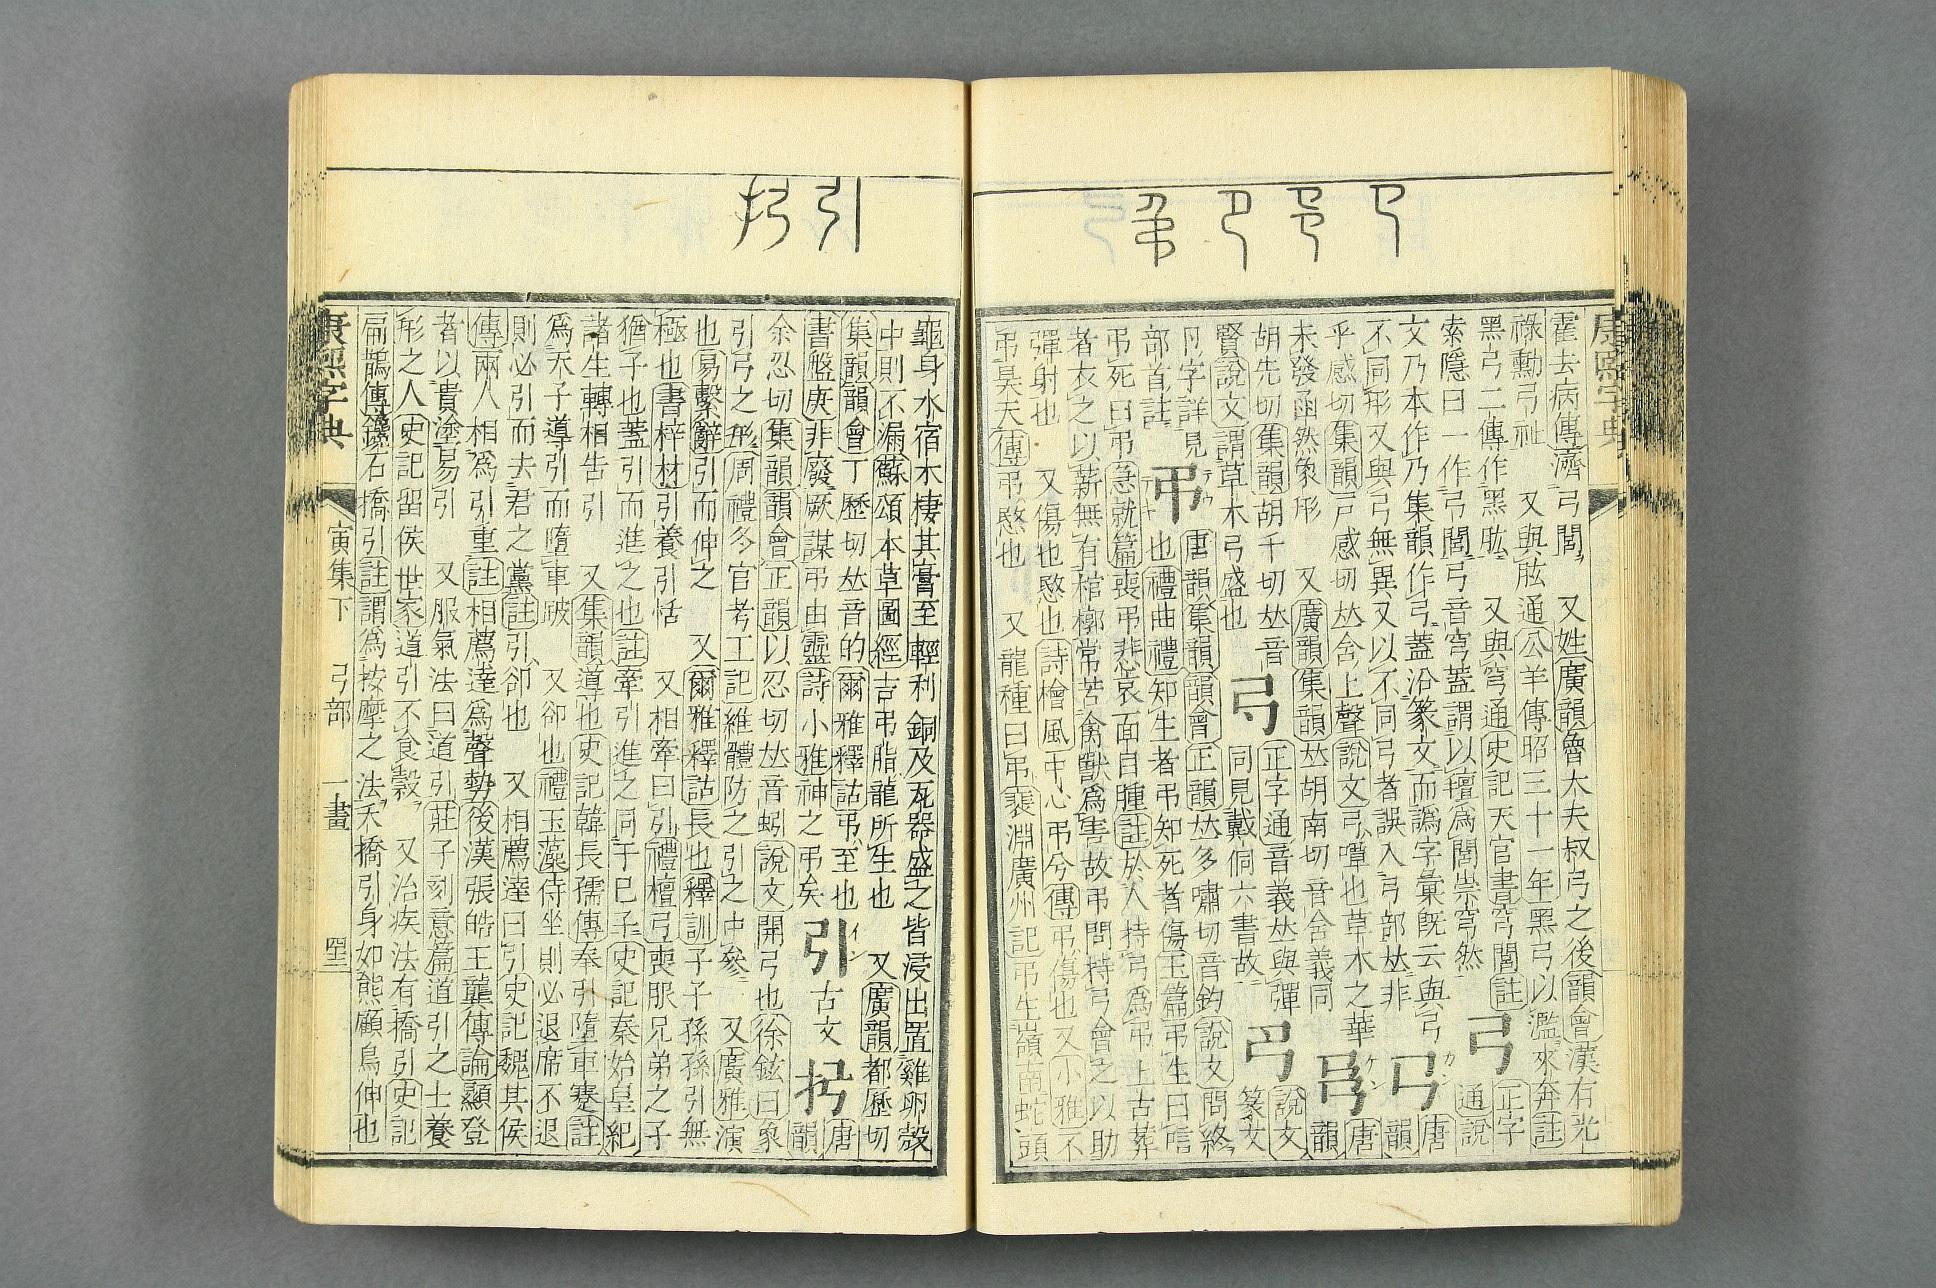 𢎘 𢎜 㔾 弔
康熙字典
霍去病傳濟弓閭 又姓廣韻魯大夫叔弓之後韻會漢有光
祿勳弓祉 又與肱通公羊傳昭三十一年黑弓以濫來奔註
黑弓二傳作黑肱 又與穹通史記天官書穹閭註 正字
索隱曰一作弓閭弓音穹蓋謂以氊爲閭崇穹然 通說
文乃本作乃集韻作弓蓋沿篆文而譌字彙旣云與弓 カン 唐
不同形又與弓無異又以不同弓者誤入弓部𠀤非 𢎘 韻
乎感切集韻戸感切𠀤含上聲說文𢎘嘾也草木之華 ケン 唐
未發函然象形 又廣韻集韻𠀤胡南切音含義同 𢎜 韻
胡先切集韻胡千切𠀤音 正字通音義𠀤與彈 說文
賢說文謂草木弓盛也 同見戴侗六書故 篆文
卪字詳見 テウ 唐韻集韻韻會正韻𠀤多嘯切音釣說文問終
部首註 弔 也禮曲禮知生者弔知死者傷玉篇弔生曰唁
弔死曰弔急就篇喪弔悲哀面目腫註於人持弓爲弔上古葬
者衣之以薪無有棺槨常苦禽獸爲害故弔問持弓會之以助
彈射也 又傷也愍也詩檜風中心弔兮傳弔傷也又小雅不
弔昊天傳弔愍也 又龍種曰弔裴淵廣州記弔生嶺南蛇頭
引 𢪉
龜身水宿木棲其膏至輕利銅及瓦器盛之皆浸出置雞卵殼
中則不漏蘇頌本草圖經吉弔脂龍所生也 又廣韻都歷切
集韻韻會丁歷切𠀤音的爾雅釋詁弔至也 イン 引 古文 𢪉 唐
書盤庚非廢厥謀弔由靈詩小雅神之弔矣 韻
余忍切集韻韻會正韻以忍切𠀤音蚓說文開弓也徐鉉曰象
引弓之形周禮冬官考工記維體防之引之中參 又廣雅演
也易繫辭引而伸之 又爾雅釋詁長也釋訓子子孫孫引無
極也書梓材引養引恬 又相牽曰引禮檀弓喪服兄弟之子
猶子也蓋引而進之也註牽引進之同于已子史記秦始皇紀
諸生轉相告引 又集韻道也史記韓長孺傳奉引墮車蹇註
爲天子導引而墮車破 又卻也禮玉藻侍坐則必退席不退
則必引而去君之黨註引卻也 又相薦達曰引史記魏其侯
傳兩人相爲引重註相薦達爲聲勢後漢張皓王龔傳論顯登
者以貴塗易引 又服氣法曰道引莊子刻意篇道引之士養
形之人史記留侯世家道引不食穀 又治疾法有撟引史記
扁鵲傳鑱石撟引註謂爲按摩之法夭撟引身如熊顧鳥伸也
康熙字典 寅集下 弓部 一畫